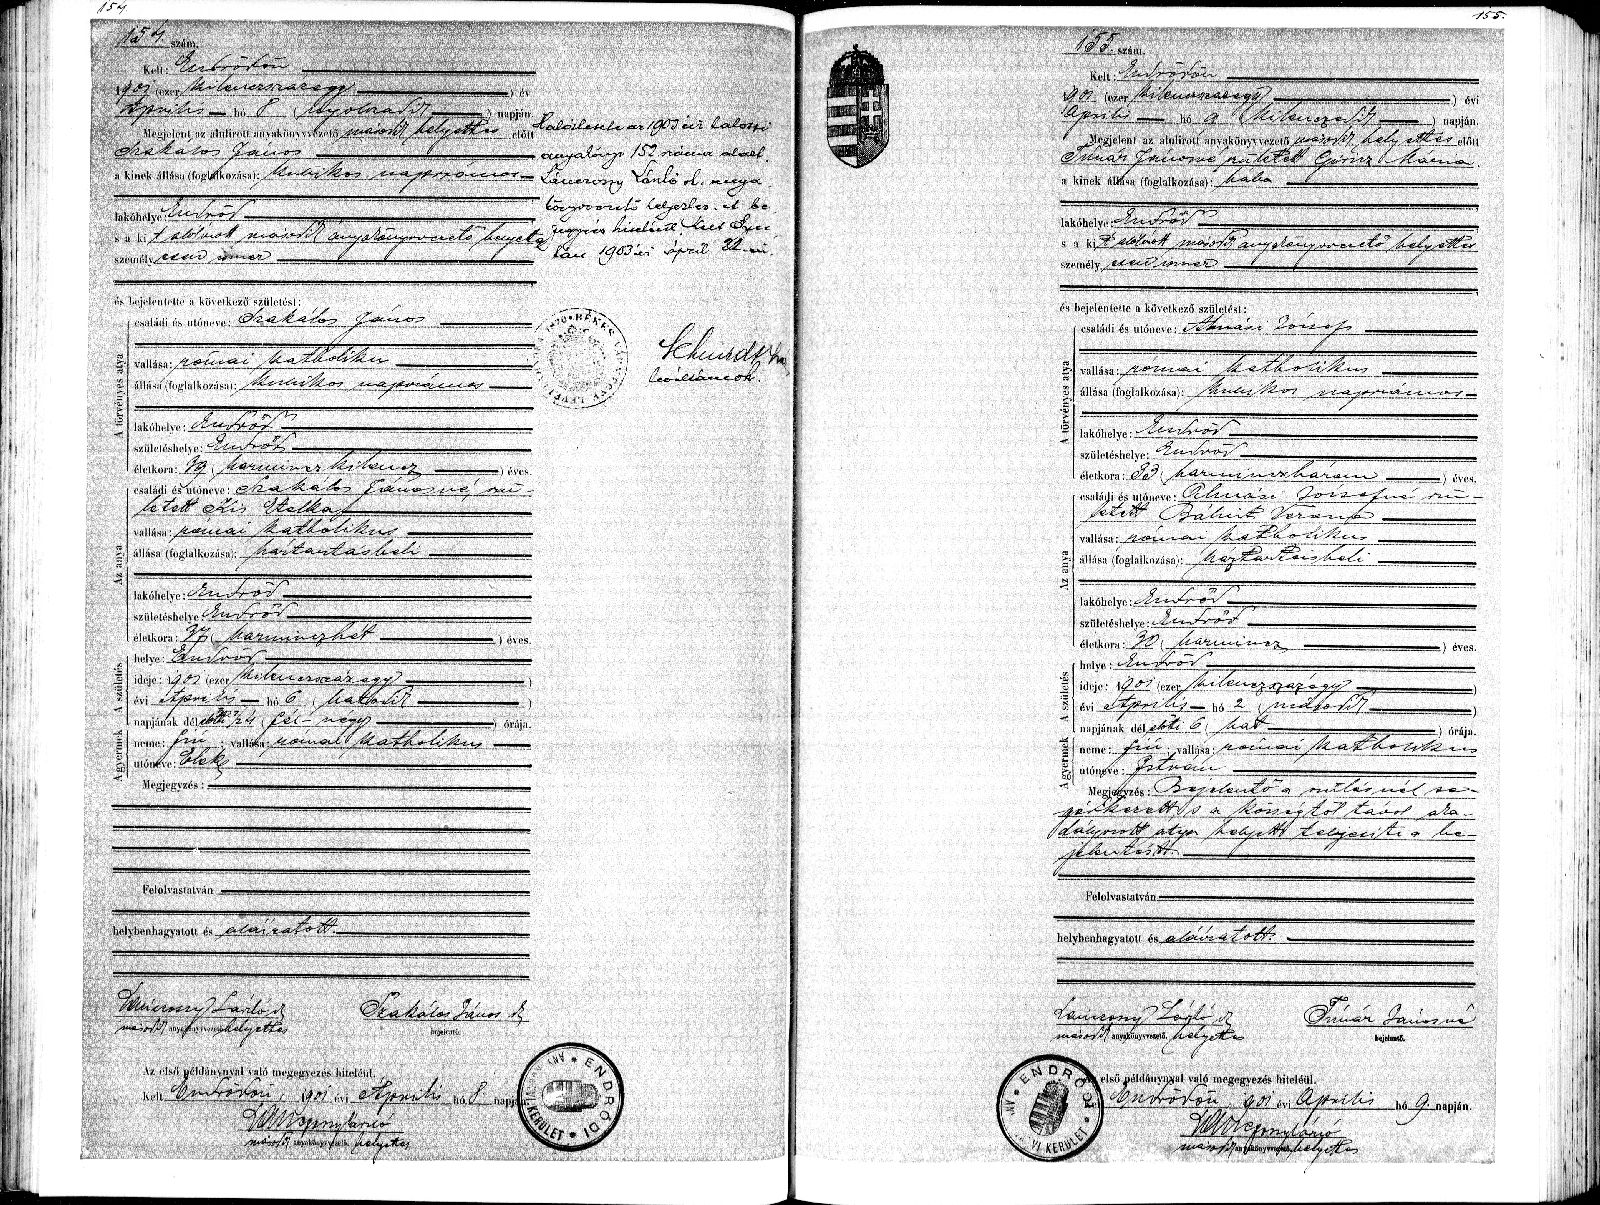 154.
154. szám.
Kelt: Endrődön
1901 (ezer kilenczszázegy) év
Április hó 8 (nyolczadik) napján.
Megjelent az alulirott anyakönyvvezető második helyettes előtt
Szakálos János
a kinek állása (foglalkozása): kubikos napszámos
lakóhelye: Endrőd
s a kit alólirott második anyakönyvvezető helyettes
személyesen ismer
és bejelentette a következő születést:
A törvényes atya
családi és utóneve: Szakálos János
vallása: római katholikus
állása (foglalkozása): kubikos napszámos
lakóhelye: Endrőd
születéshelye: Endrőd
életkora: 39 (harminczkilencz) éves.
Az anya
családi és utóneve: Szakálos Jánosné, szü-
letett Kis Etelka
vallása: római katholikus
állása (foglalkozása): háztartásbeli
lakóhelye: Endrőd
születéshelye: Endrőd
életkora: 37 (harminczhét) éves.
A születés
helye: Endrőd
ideje: 1901 (ezer kilenczszázegy)
évi Április hó 6 (hatodik)
napjának dél (fél-négy) órája.
A gyermek
neme: fiú; vallása: római katholikus
utóneve: Elek
Megjegyzés:
Felolvastatván
helybenhagyatott és aláiratott.
László
második anyakönyvvezető helyettes
Szakálos János
bejelentő.
Az első példánynyal való megegyezés hiteléül.
Kelt Endrődön, 1901 évi Április hó 8 napján.
László
második anyakönyvvezető helyettes
ENDRŐDI
KERÜLET
Halálesete az 1903 évi halotti
anyakönyv 152 száma alatt.
László
könyvvezető helyettes. A be-
1903 évi április 22-én.
BÉKÉS
155.
155. szám.
Kelt: Endrődön
1901 (ezer kilenczszázegy) évi
Április hó 9 (kilenczedik) napján.
Megjelent az alulirott anyakönyvvezető második helyettes előtt
Jánosné született Mária
a kinek állása (foglalkozása): bába
lakóhelye: Endrőd
s a kit alólirott második anyakönyvvezető helyettes
személyesen ismer
és bejelentette a következő születést:
A törvényes atya
családi és utóneve: Almási József
vallása: római katholikus
állása (foglalkozása): kubikos napszámos
lakóhelye: Endrőd
születéshelye: Endrőd
életkora: 33 (harminczhárom) éves.
Az anya
családi és utóneve: Almási Józsefné szü-
letett Bálint Verona
vallása: római katholikus
állása (foglalkozása): háztartásbeli
lakóhelye: Endrőd
születéshelye: Endrőd
életkora: 30 (harmincz) éves.
A születés
helye: Endrőd
ideje: 1901 (ezer kilenczszázegy)
évi Április hó 2 (második)
napjának dél előtti 6 (hat) órája.
A gyermek
neme: fiú; vallása: római katholikus
utóneve: István
Megjegyzés: Bejelentő a szülésnél se-
gédkezett, s a községtől távol aka-
dályozott atya helyett teljesiti a be-
jelentést.
Felolvastatván
helybenhagyatott és aláiratott.
László
második anyakönyvvezető helyettes
Jánosné
bejelentő.
Az első példánynyal való megegyezés hiteléül.
Endrődön, 1901 évi Április hó 9 napján.
László
második anyakönyvvezető helyettes
ENDRŐDI
KERÜLET